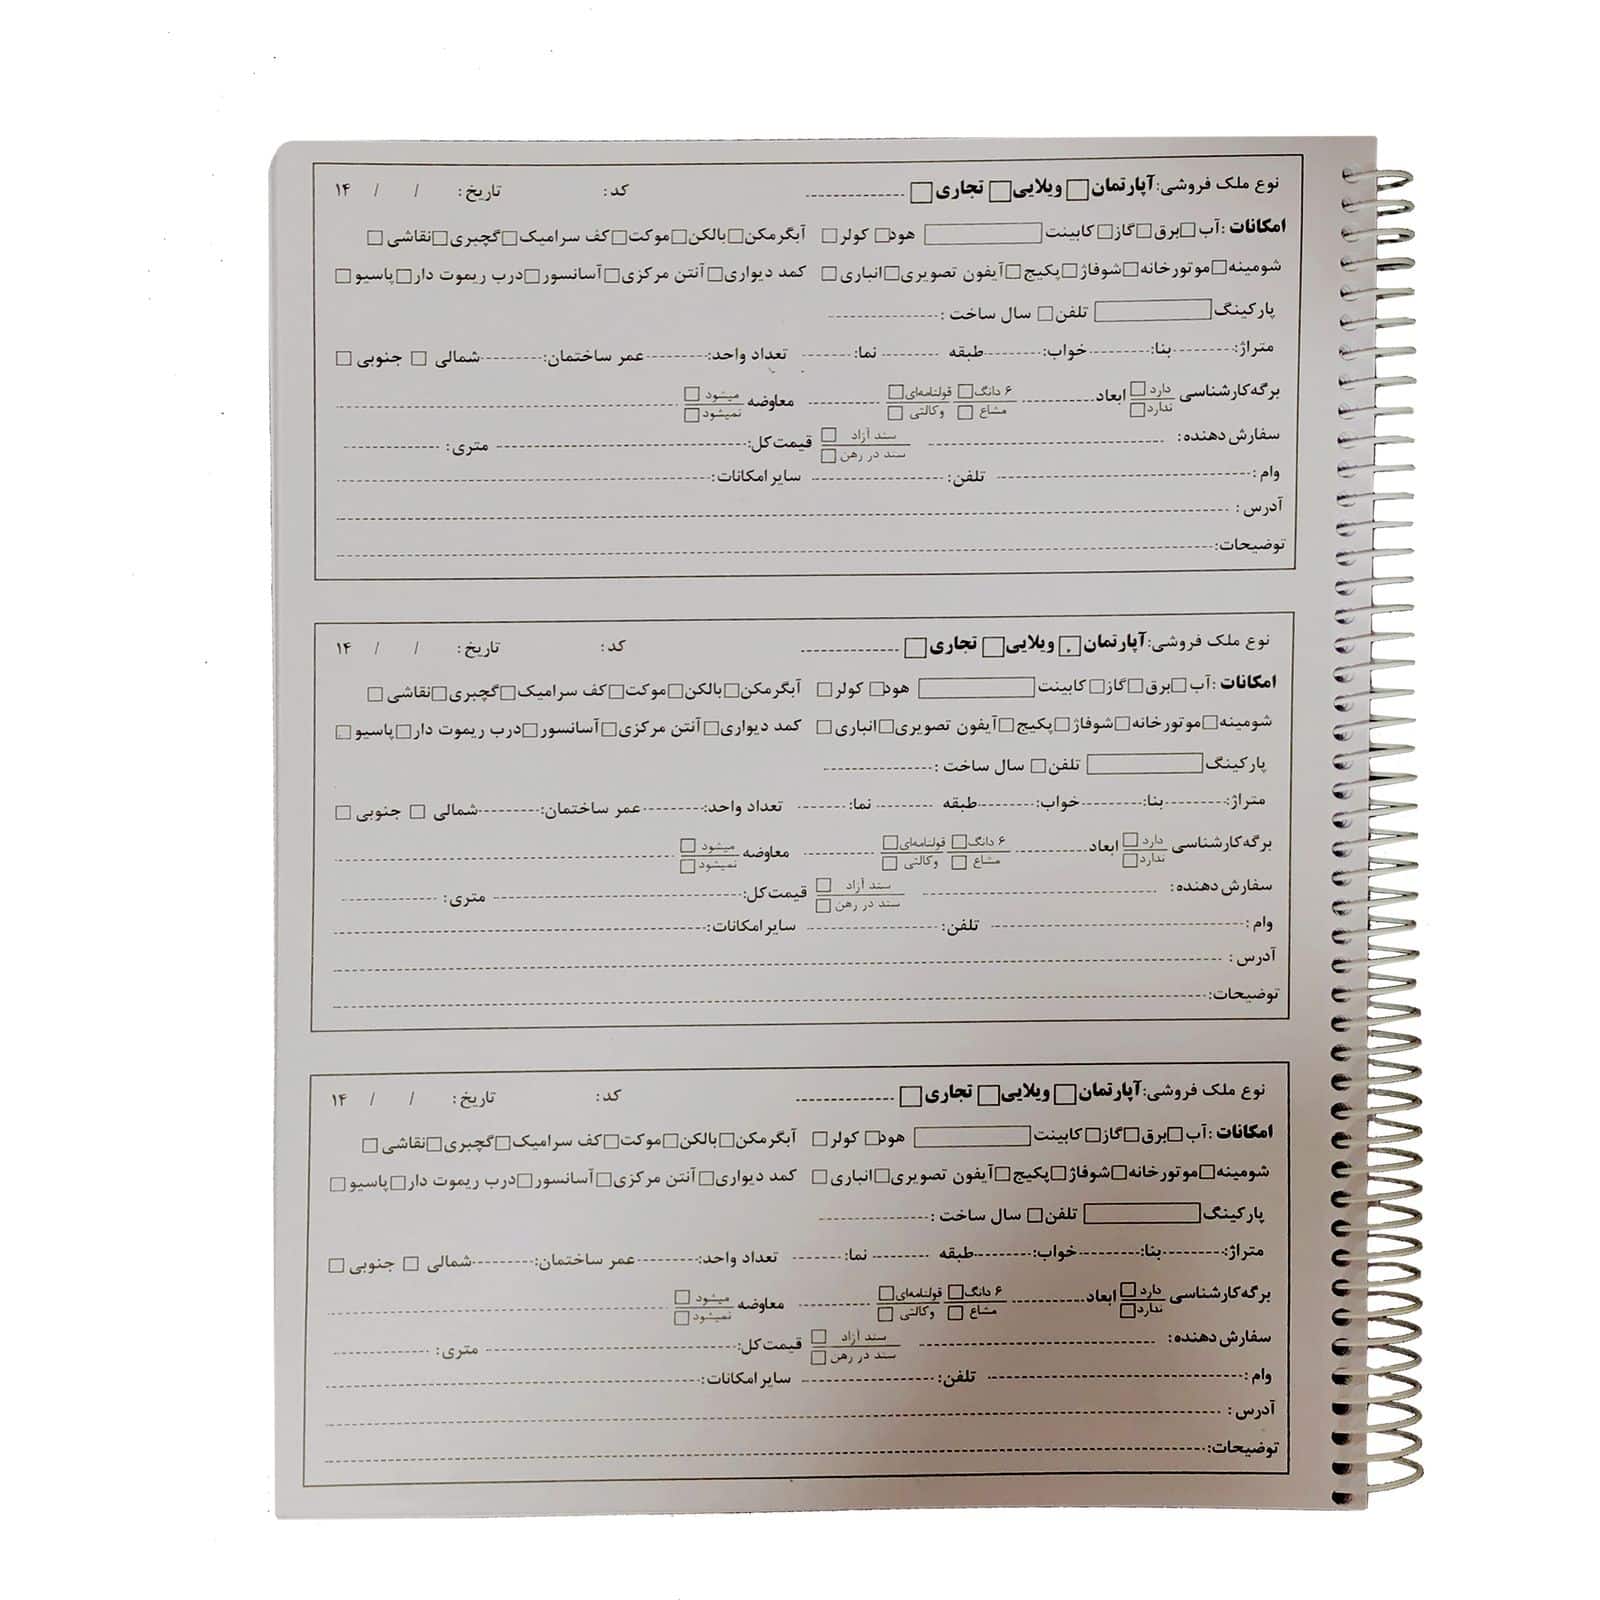 نوع ملک فروشی: آپارتمان ویلایی تجاری کد: تاریخ: / / ۱۴
امکانات: آب برق گاز کابینت هود کولر آبگرمکن بالکن موکت کف سرامیک گچبری نقاشی
شومینه موتورخانه شوفاژ پکیج آیفون تصویری انباری کمد دیواری آنتن مرکزی آسانسور درب ریموت دار پاسیو
پارکینگ تلفن سال ساخت:
متراژ: بنا: خواب: طبقه نما: تعداد واحد: عمر ساختمان: شمالی جنوبی
برگه کارشناسی دارد ندارد ابعاد ۶ دانگ مشاع قولنامه‌ای وکالتی معاوضه میشود نمیشود
سفارش دهنده: سند آزاد سند در رهن قیمت کل: متری:
وام: تلفن: سایر امکانات:
آدرس:
توضیحات:
نوع ملک فروشی: آپارتمان ویلایی تجاری کد: تاریخ: / / ۱۴
امکانات: آب برق گاز کابینت هود کولر آبگرمکن بالکن موکت کف سرامیک گچبری نقاشی
شومینه موتورخانه شوفاژ پکیج آیفون تصویری انباری کمد دیواری آنتن مرکزی آسانسور درب ریموت دار پاسیو
پارکینگ تلفن سال ساخت:
متراژ: بنا: خواب: طبقه نما: تعداد واحد: عمر ساختمان: شمالی جنوبی
برگه کارشناسی دارد ندارد ابعاد ۶ دانگ مشاع قولنامه‌ای وکالتی معاوضه میشود نمیشود
سفارش دهنده: سند آزاد سند در رهن قیمت کل: متری:
وام: تلفن: سایر امکانات:
آدرس:
توضیحات:
نوع ملک فروشی: آپارتمان ویلایی تجاری کد: تاریخ: / / ۱۴
امکانات: آب برق گاز کابینت هود کولر آبگرمکن بالکن موکت کف سرامیک گچبری نقاشی
شومینه موتورخانه شوفاژ پکیج آیفون تصویری انباری کمد دیواری آنتن مرکزی آسانسور درب ریموت دار پاسیو
پارکینگ تلفن سال ساخت:
متراژ: بنا: خواب: طبقه نما: تعداد واحد: عمر ساختمان: شمالی جنوبی
برگه کارشناسی دارد ندارد ابعاد ۶ دانگ مشاع قولنامه‌ای وکالتی معاوضه میشود نمیشود
سفارش دهنده: سند آزاد سند در رهن قیمت کل: متری:
وام: تلفن: سایر امکانات:
آدرس:
توضیحات: